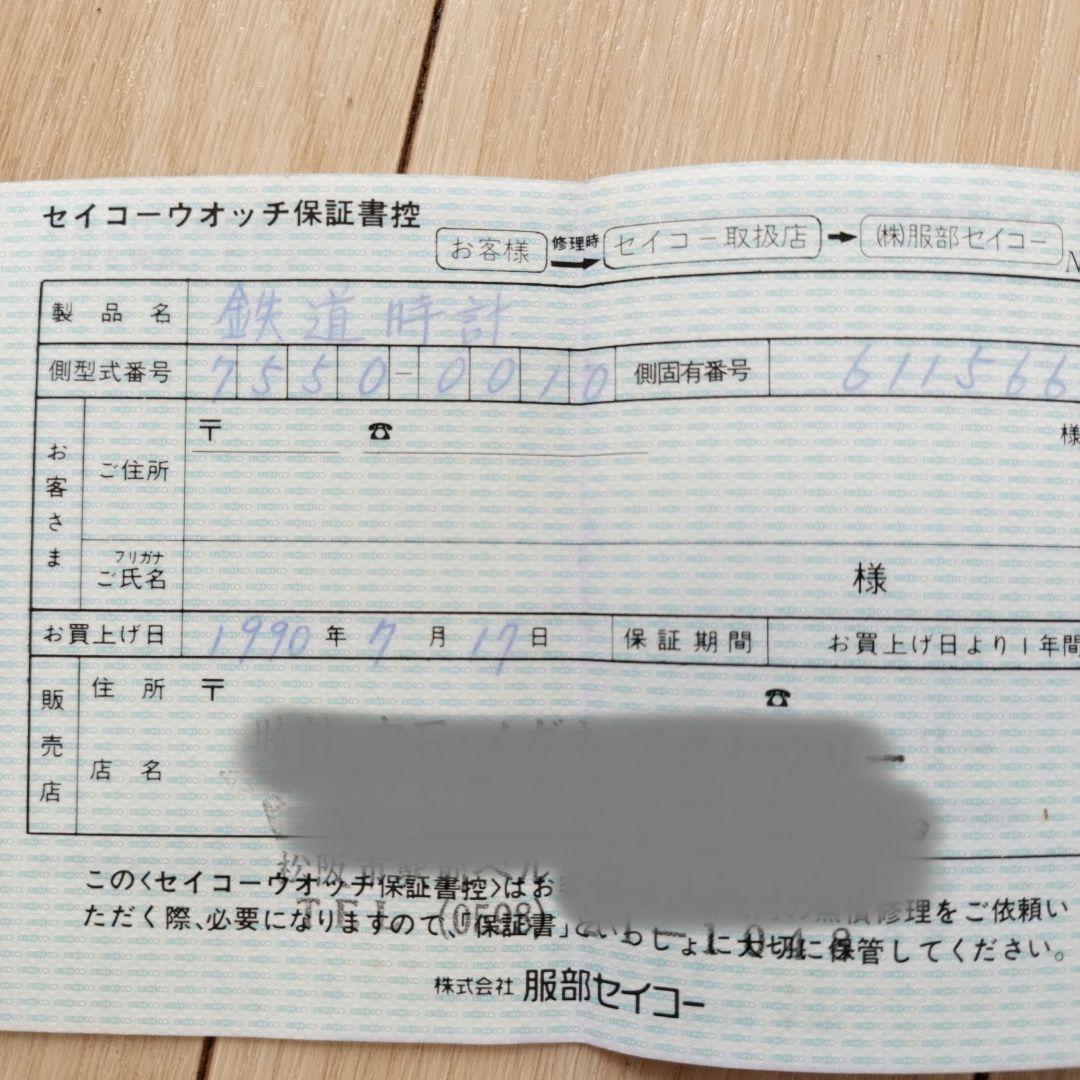 セイコーウオッチ保証書控
お客様 修理時 セイコー取扱店 (株)服部セイコー
製品名 鉄道時計
側型式番号 7550-0010 側固有番号 611566
お客さま
ご住所 〒 ☎ 様
フリガナ
ご氏名 様
お買上げ日 1990年7月17日 保証期間 お買上げ日より1年間
販売店
住所 〒 ☎
店名
松阪市駅前ベル
この〈セイコーウオッチ保証書控〉はお
TEL (0598)
の無償修理をご依頼い
ただく際、必要になりますので、「保証書」といっしょに大切に保管してください。
株式会社 服部セイコー